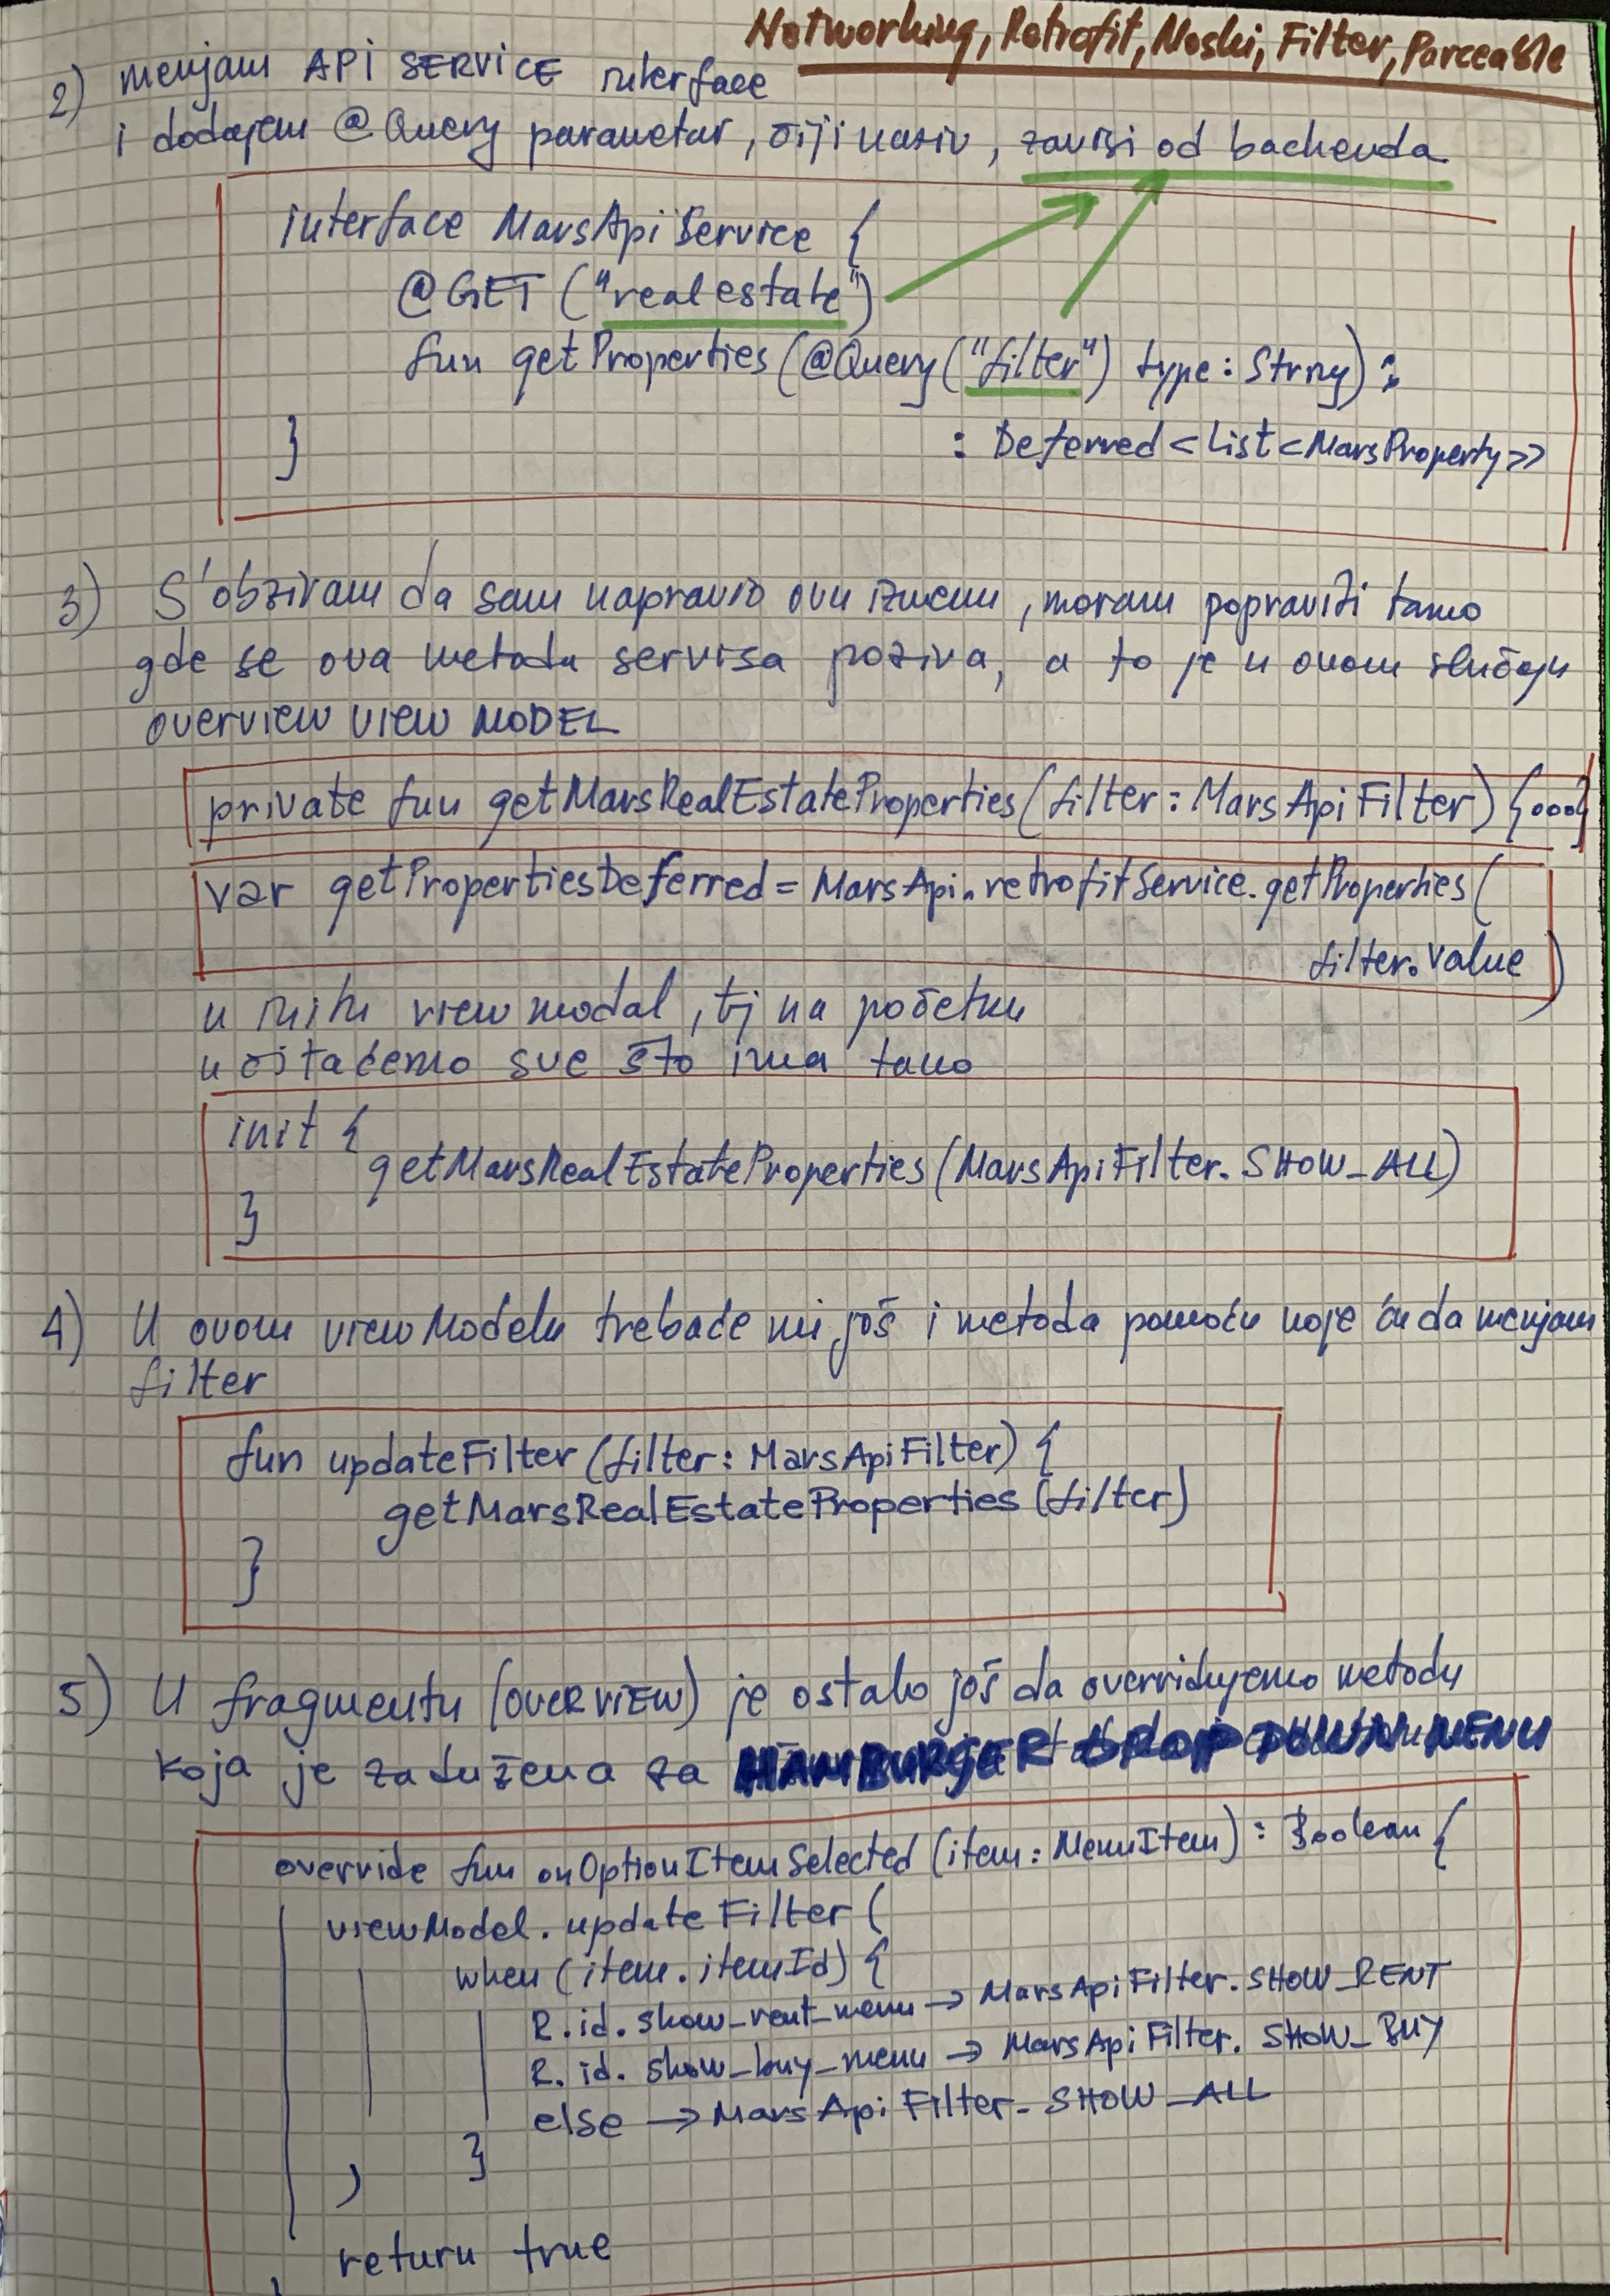 Networking, Retrofit, Moshi, Filter, Parceable
2) menjam API SERVICE interface
i dodajem @Query parametar, čiji naziv, zavisi od backenda
interface MarsApiService {
@GET ("realestate")
fun getProperties (@Query("filter") type: String) :
: Deferred <List<MarsProperty>>
}
3) S'obzirom da sam napravio ovu izmenu, moram popraviti tamo
gde se ova metoda servisa poziva, a to je u ovom slučaju
OVERVIEW VIEW MODEL
private fun getMarsRealEstateProperties (filter: MarsApiFilter) {...}
var getPropertiesDeferred = MarsApi.retrofitService.getProperties (
filter.value )
u initu view modal, tj na početku
učitaćemo sve što ima tamo
init {
getMarsRealEstateProperties (MarsApiFilter.SHOW_ALL)
}
4) U ovom viewModelu trebaće mi još i metoda pomoću koje ću da menjam
filter
fun updateFilter (filter: MarsApiFilter) {
getMarsRealEstateProperties (filter)
}
5) U fragmentu (OVERVIEW) je ostalo još da overridujemo metodu
koja je zadužena za HAMBURGER DROP DOWN MENU
override fun onOptionItemSelected (item: MenuItem) : Boolean {
viewModel.updateFilter (
when (item.itemId) {
R.id.show_rent_menu → MarsApiFilter.SHOW_RENT
R.id.show_buy_menu → MarsApiFilter.SHOW_BUY
else → MarsApiFilter.SHOW_ALL
}
)
return true